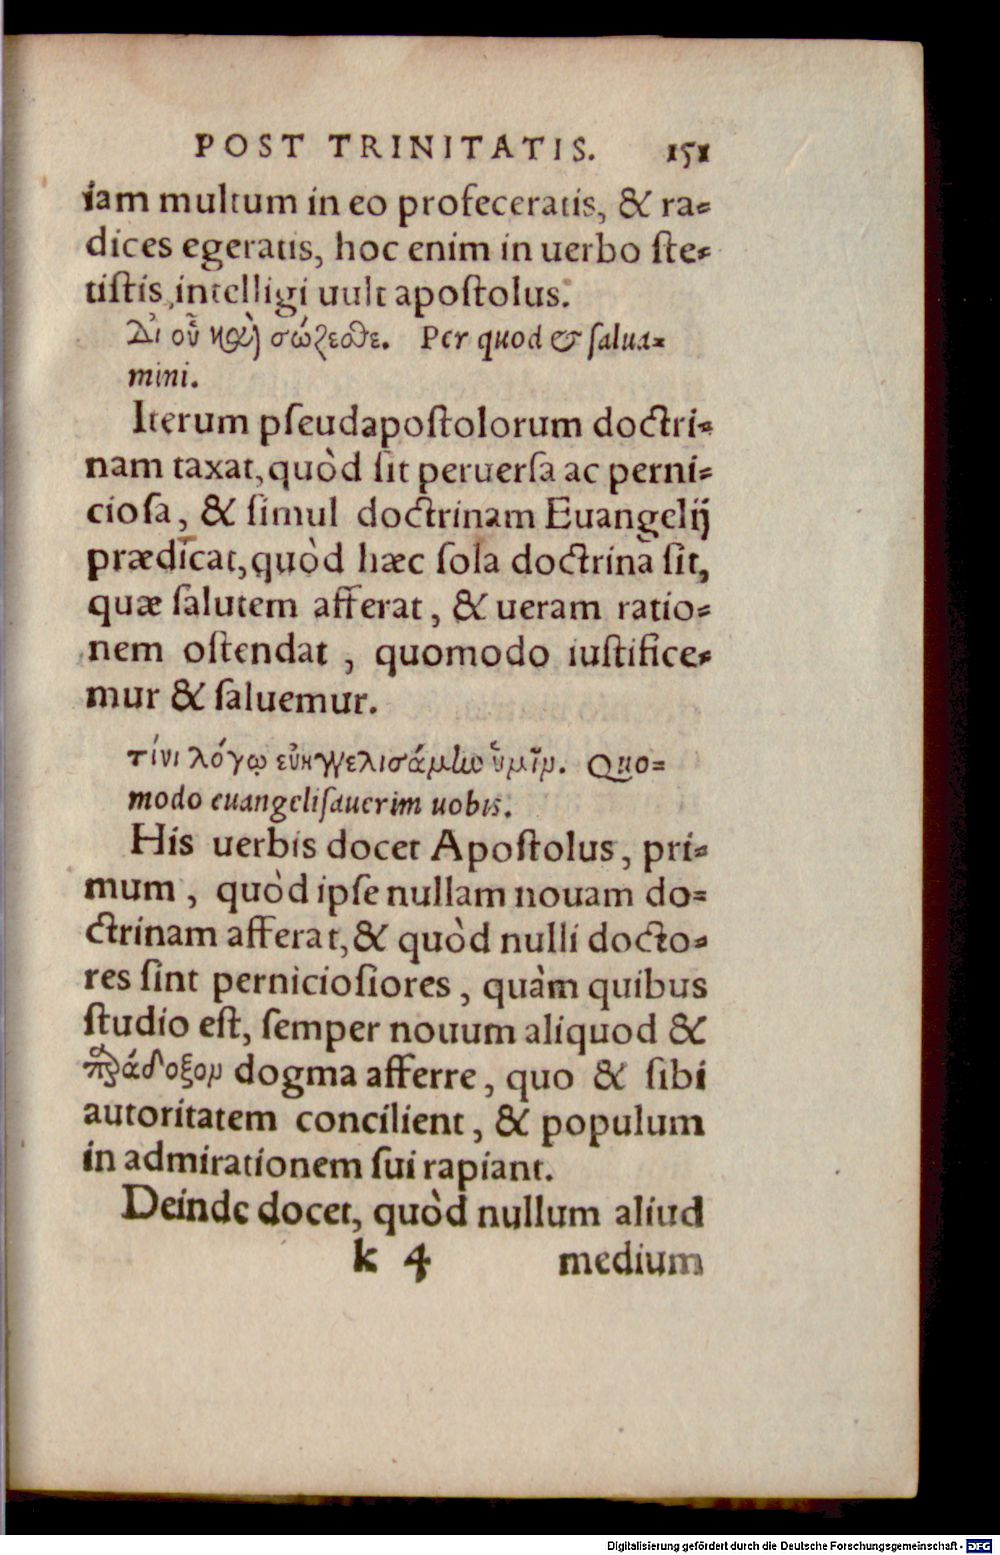 POST TRINITATIS. 151
iam multum in eo profeceratis, & ra-
dices egeratis, hoc enim in uerbo ste-
tistis, intelligi uult apostolus.
Δι οὗ καὶ σώζεσθε. Per quod & salua-
mini.
Iterum pseudapostolorum doctri-
nam taxat, quòd sit peruersa ac perni-
ciosa, & simul doctrinam Euangelij
prædicat, quòd hæc sola doctrina sit,
quæ salutem afferat, & ueram ratio-
nem ostendat, quomodo iustifice-
mur & saluemur.
τίνι λόγῳ εὐηγγελισάμην ὑμῖν. Quo-
modo euangelisauerim uobis.
His uerbis docet Apostolus, pri-
mum, quòd ipse nullam nouam do-
ctrinam afferat, & quòd nulli docto-
res sint perniciosiores, quàm quibus
studio est, semper nouum aliquod &
παράδοξον dogma afferre, quo & sibi
autoritatem concilient, & populum
in admirationem sui rapiant.
Deinde docet, quòd nullum aliud
k 4 medium
Digitalisierung gefördert durch die Deutsche Forschungsgemeinschaft - DFG